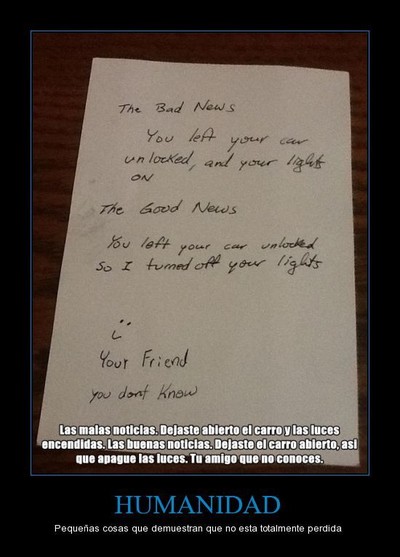 The Bad News
You left your car
unlocked, and your lights
ON
The Good News
You left your car unlocked
so I turned off your lights
Your Friend
you dont know
Las malas noticias. Dejaste abierto el carro y las luces
encendidas. Las buenas noticias. Dejaste el carro abierto, asi
que apague las luces. Tu amigo que no conoces.
HUMANIDAD
Pequeñas cosas que demuestran que no esta totalmente perdida